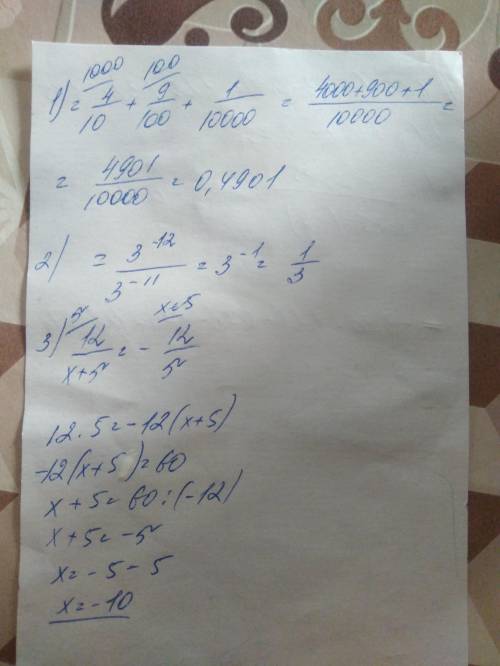 1000 100
1) = 4/10 + 9/100 + 1/10000 = (4000+900+1)/10000 =
= 4901/10000 = 0,4901
2) = 3^-12/3^-11 = 3^-1 = 1/3
5 x+5
3) 12/(x+5) = - 12/5
12 · 5 = -12(x+5)
-12(x+5) = 60
x + 5 = 60 : (-12)
x + 5 = -5
x = - 5 - 5
x = -10